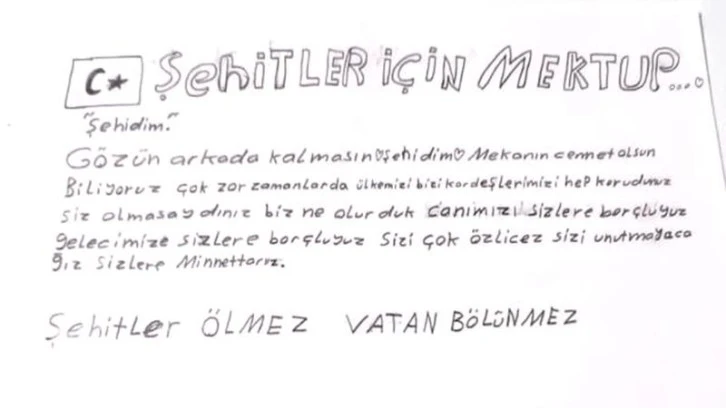 ŞehiTLER İÇİN MEKTUP...
"Şehidim."
Gözün arkada kalmasın♡şehidim♡ Mekanın cennet olsun
Biliyoruz çok zor zamanlarda ülkemizi bizi kardeşlerimizi hep korudunuz
siz olmasaydınız biz ne olurduk canımızı sizlere borçluyuz
gelecimize sizlere borçluyuz sizi çok özlicez sizi unutmayaca
ğız sizlere Minnettarız.
Şehitler ÖLMEZ VATAN BÖLÜNMEZ